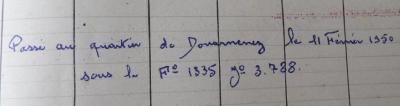 Passé au quartier de Douarnenez le 11 Février 1950
sous le Fº 1335 nº 3.788.